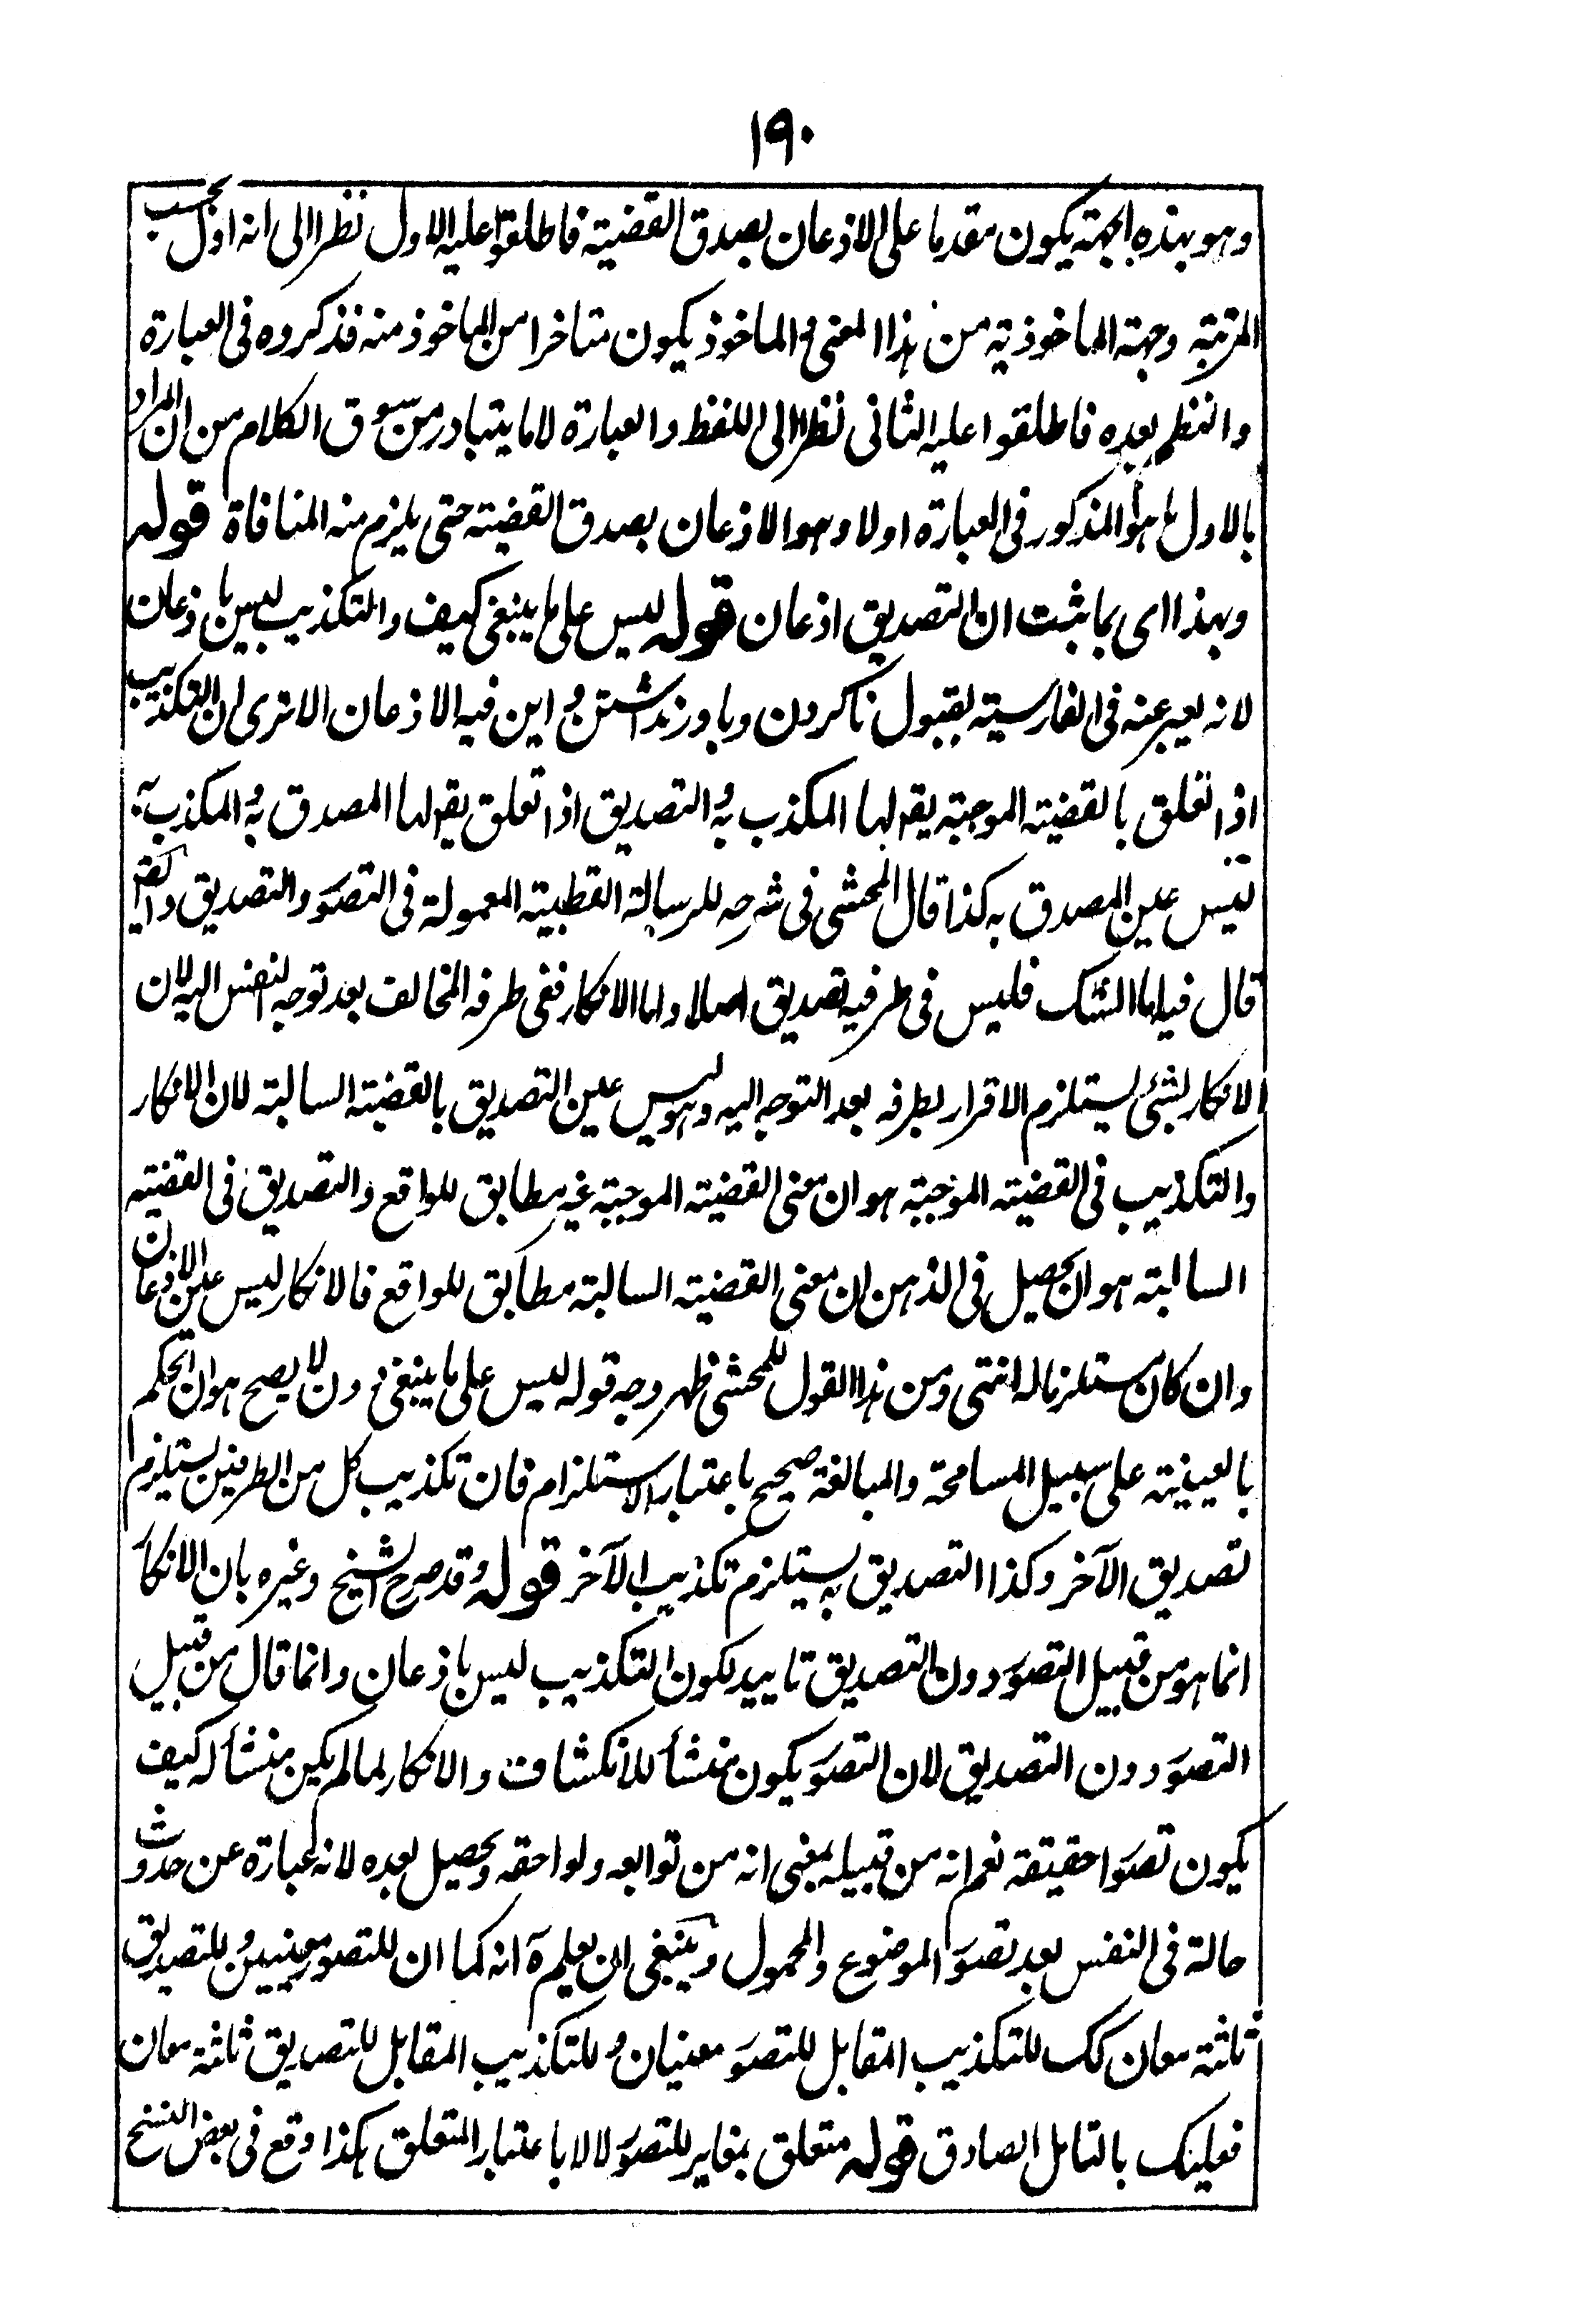 ١٩٠
وهو بهذه الجهة يكون مقدما على الاذعان بصدق القضية فاطلقوا عليه الاول نظرا الى انه اول بحسب
المرتبة وجهة الماخوذية من هذا المعنى والماخوذ يكون متاخرا من الماخوذ منه فذكروه فى العبارة
والنظم بعده فاطلقوا عليه الثانى نظرا الى اللفظ والعبارة لا ما يتبادر من سوق الكلام من ان المراد
بالاول ما هو المذكور فى العبارة اولا وهو الاذعان بصدق القضية حتى يلزم منه المنافاة قوله
وبهذا اى بما ثبت ان التصديق اذعان قوله ليس على ما ينبغى كيف والتكذيب ليس باذعان
لانه يعبر عنه فى الفارسية بقبول ناكردن وباور نداشتن واين فيه الاذعان الا ترى ان التكذيب
اذا تعلق بالقضية الموجبة يقع لها المكذب به والتصديق اذا تعلق يقع لها المصدق به والمكذب به
ليس عين المصدق به كذا قال المحشى فى شرحه للرسالة القطبية المعمولة فى التصور والتصديق وايضا
قال فيه اما الشك فليس فى طرفيه تصديق اصلا واما الانكار ففى طرفه المخالف بعد توجه النفس اليه لان
الانكار لشئ يستلزم الاقرار بطرفه بعد التوجه اليه وهو ليس عين التصديق بالقضية السالبة لان الانكار
والتكذيب فى القضية الموجبة هو ان معنى القضية الموجبة غير مطابق للواقع والتصديق فى القضية
السالبة هو ان يحصل فى الذهن ان معنى القضية السالبة مطابق للواقع فالانكار ليس عين الاذعان
وان كان مستلزما له انتهى ومن هذا القول للمحشى ظهر وجه قوله ليس على ما ينبغى دون لا يصح هو ان الحكم
بالعينية على سبيل المسامحة والمبالغة صحيح باعتبار الاستلزام فان تكذيب كل من الطرفين يستلزم
تصديق الآخر وكذا التصديق به يستلزم تكذيب الآخر قوله وقد صرح الشيخ وغيره بان الانكار
انما هو من قبيل التصور دون التصديق تاييد لكون التكذيب ليس باذعان وانما قال من قبيل
التصور دون التصديق لان التصور يكون منشأ للانكشاف والانكار لما لم يكن منشأ له كيف
يكون تصورا حقيقة نعم انه من قبيله بمعنى انه من توابعه ولواحقه ويحصل بعده لانه عبارة عن حدوث
حالة فى النفس بعد تصور الموضوع والمحمول وينبغى ان يعلم آه انه كما ان للتصور معنيين وللتصديق
ثلثة معان كك للتكذيب المقابل للتصور معنيان وللتكذيب المقابل للتصديق ثلثة معان
فعليك بالتامل الصادق قوله متعلق بمغاير للتصور لا لا باعتبار المتعلق هكذا وقع فى بعض النسخ